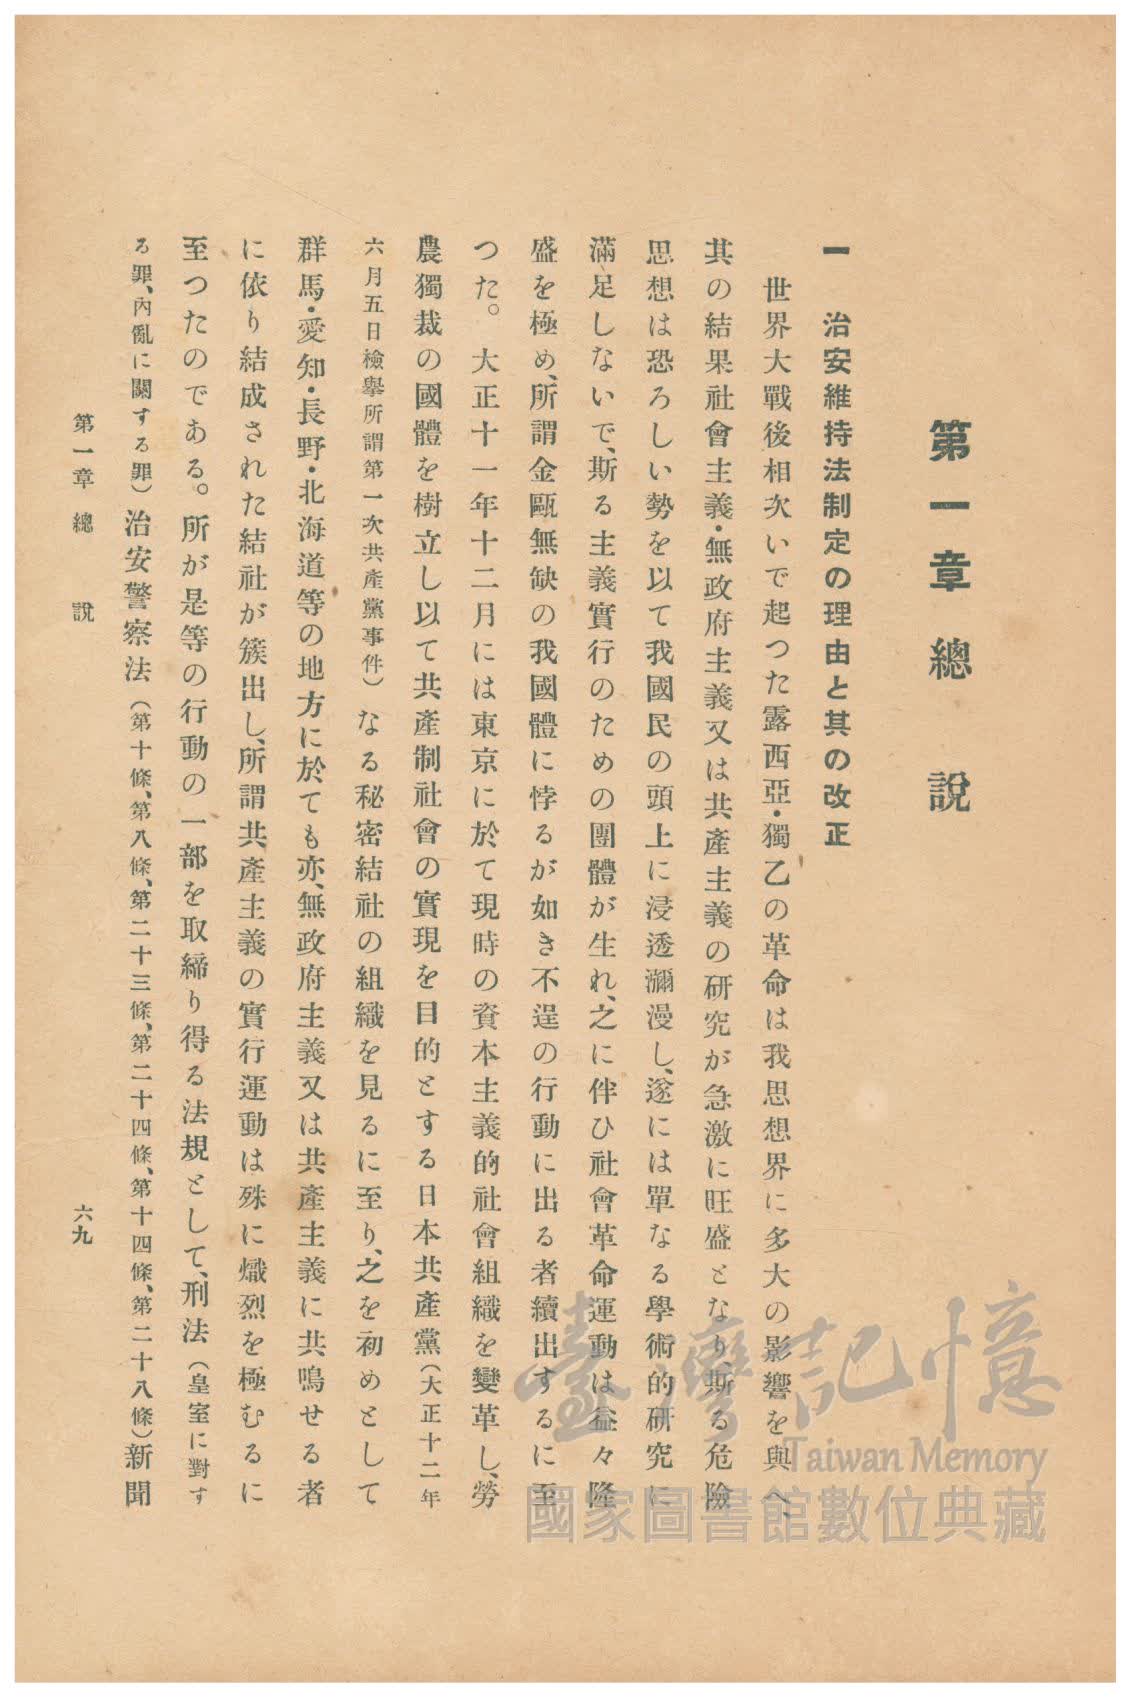 第一章 總說
一 治安維持法制定の理由と其の改正
世界大戰後相次いで起つた露西亞・獨乙の革命は我思想界に多大の影響を與へ、
其の結果社會主義・無政府主義又は共產主義の硏究が急激に旺盛となり、斯る危險
思想は恐ろしい勢を以て我國民の頭上に浸透瀰漫し、遂には單なる學術的硏究に
滿足しないで、斯る主義實行のための團體が生れ、之に伴ひ社會革命運動は益々隆
盛を極め、所謂金甌無缺の我國體に悖るが如き不逞の行動に出る者續出するに至
つた。大正十一年十二月には東京に於て現時の資本主義的社會組織を變革し、勞
農獨裁の國體を樹立し以て共產制社會の實現を目的とする日本共產黨（大正十二年
六月五日檢擧所謂第一次共產黨事件）なる秘密結社の組織を見るに至り、之を初めとして
群馬・愛知・長野・北海道等の地方に於ても亦、無政府主義又は共產主義に共鳴せる者
に依り結成された結社が簇出し、所謂共產主義の實行運動は殊に熾烈を極むるに
至つたのである。所が是等の行動の一部を取締り得る法規として、刑法（皇室に對す
る罪、內亂に關する罪）治安警察法（第十條、第八條、第二十三條、第二十四條、第十四條、第二十八條）新聞
第一章 總說
六九
臺灣記憶
Taiwan Memory
國家圖書館數位典藏